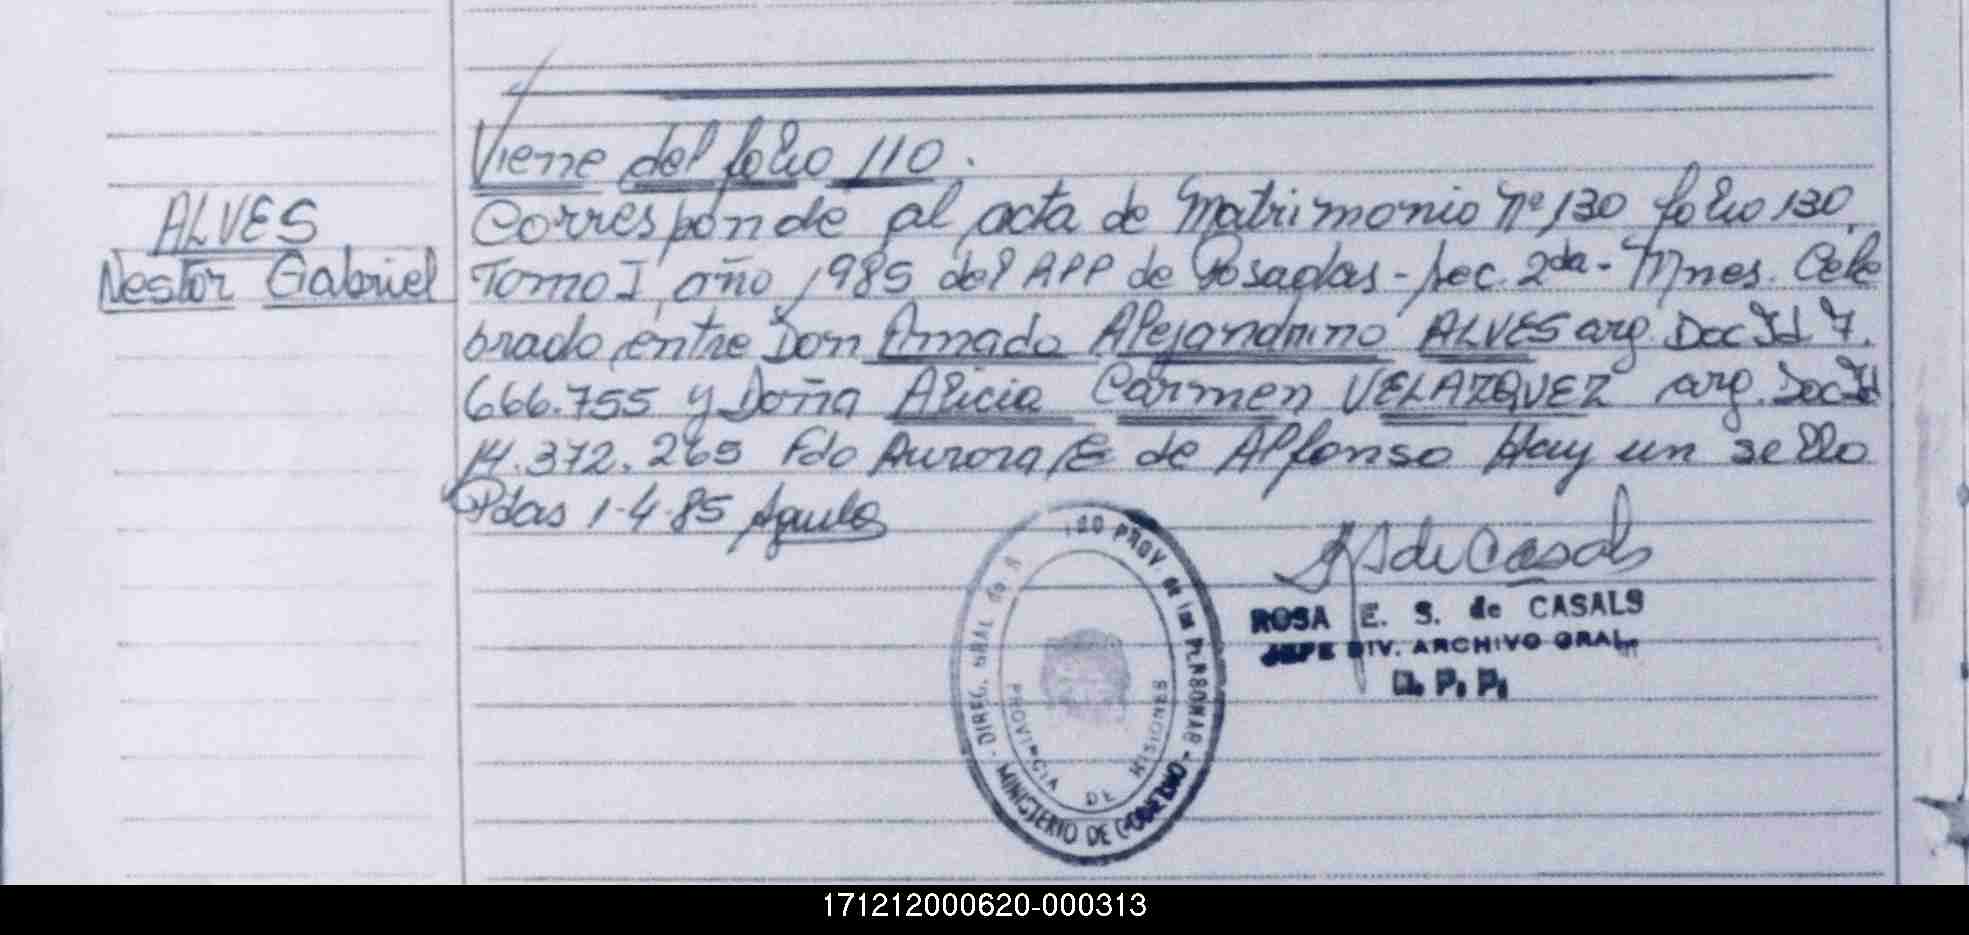 Viene del folio 110.
ALVES
Nestor Gabriel
Corresponde al acta de Matrimonio Nº 130 folio 130.
Tomo I año 1985 del APP de Posadas - sec. 2da - Mnes. Cele
brado entre Don Amado Alejandrino ALVES arg. Doc Id 7.
666.755 y Doña Alicia Carmen VELAZQUEZ arg. Doc Id
14.372.265 Fdo Aurora E de Alfonso Hay un sello
Pdas 1-4-85
de Casals
ROSA E. S. de CASALS
JEFE DIV. ARCHIVO GRAL.
PROV de las PERSONAS - MINISTERIO DE GOBIERNO - DIREC. GRAL
PROVINCIA DE MISIONES
171212000620-000313